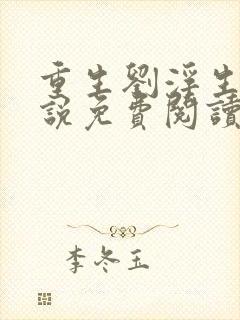 重生劉淫生
說免費閱讀
李冬玉